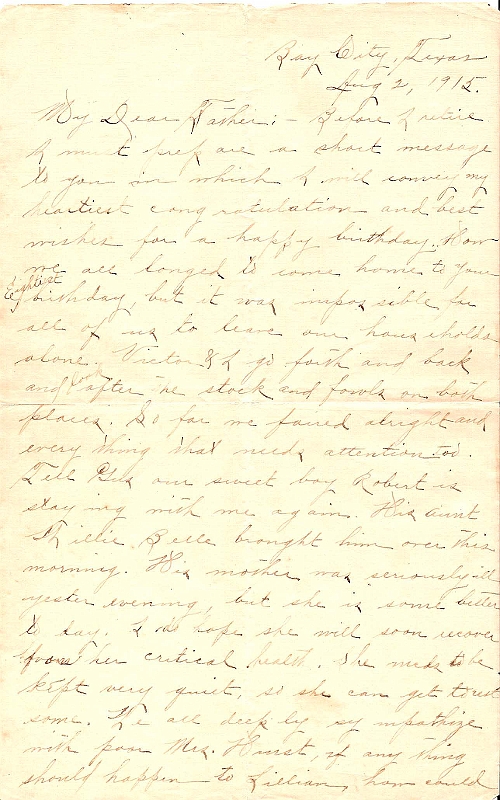 Bay City, Texas
Aug 2, 1915.
My Dear Father: - Before I retire
I must prepare a short message
to you in which I will convey my
heartiest congratulation and best
wishes for a happy birthday. How
we all longed to come home to your
Eightiest
birthday, but it was impossible for
all of us to leave our households
alone. Victor & I go forth and back
and look after the stock and fowls on both
places. So far we faired alright and
every thing that needs attention too.
Tell Gus our sweet boy Robert is
staying with me again. His aunt
Belle brought him over this
morning. His mother was seriously ill
yester evening, but she is some better
to day. I do hope she will soon recover
from her critical health. She needs to be
kept very quiet, so she can get to rest
some. We all deeply sympathize
with poor Mrs. Hurst, if any thing
should happen to Lillian, how could